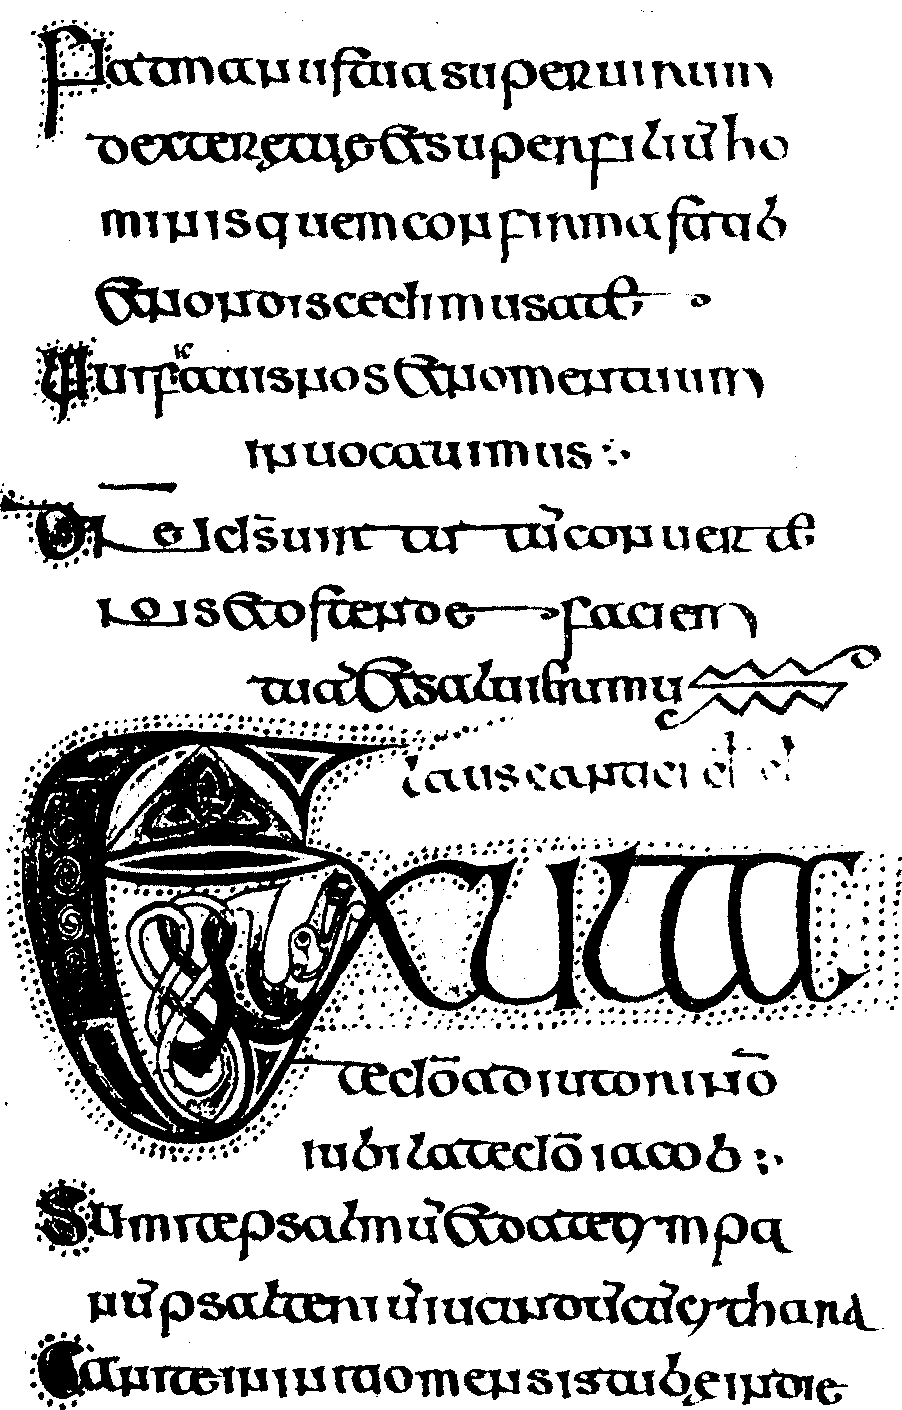 Fiat manus tua super uirum
dexterętuę & super filiū ho
minis quem confirmasti tibi
& non discedimus a te
Uiuificauis nos & nomen tuum
inuocauimus :·
Dne ds uirtutū conuerte
nos & ostende faciem
tuā & salui erimus
laus cantici
Exulta
te dō adiutori nrō
iubilate dō iacob :·
Sumite psalmū & date tympa
nū psalteriū iucundū cū cythara
Canite in initio mensis tubę in die